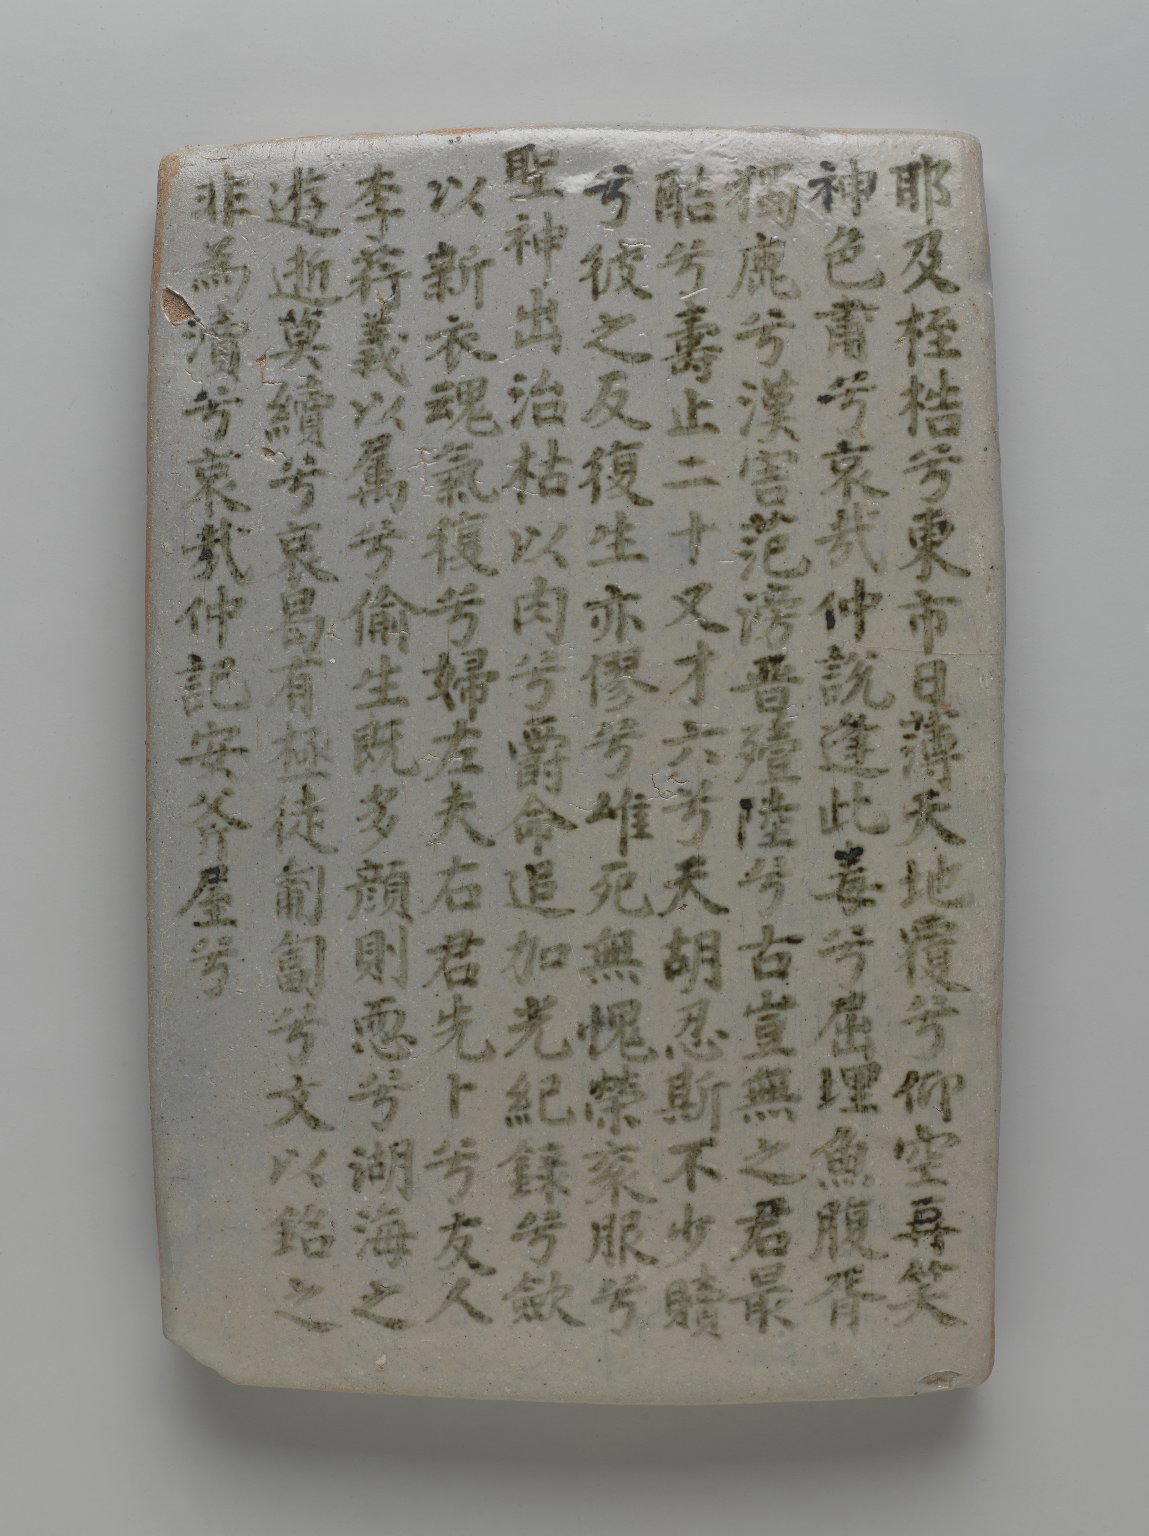 耶及桎梏兮東市日薄天地覆兮仰空再笑
神色肅兮哀哉仲說逢此毒兮屈埋魚腹胥
獨鹿兮漢害范滂晉殪陸兮古豈無之君最
酷兮壽止二十又才六兮天胡忍斯不少贖
兮彼之反復生亦僇兮雄死無愧榮袞服兮
聖神出治枯以肉兮爵命追加光紀錄兮歛
以新衣魂氣復兮婦左夫右君先卜兮友人
李荇義以属兮偷生既多顔則恧兮湖海之
遊逝莫續兮哀曷有極徒匍匐兮文以銘之
非爲瀆兮哀哉仲記安斧屋兮